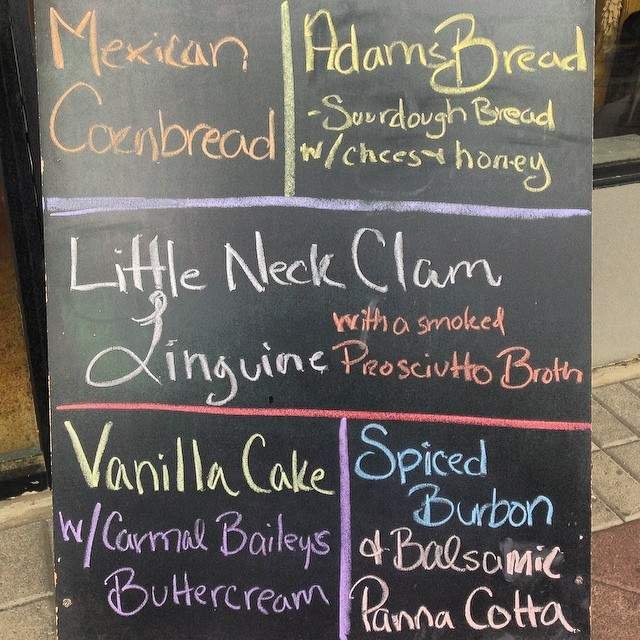 Mexican
Cornbread
Adams Bread
-Sourdough Bread
w/cheese & honey
Little Neck Clam
Linguine
with a smoked
Prosciutto Broth
Vanilla Cake
w/Carmal Baileys
Buttercream
Spiced
Burbon
& Balsamic
Panna Cotta